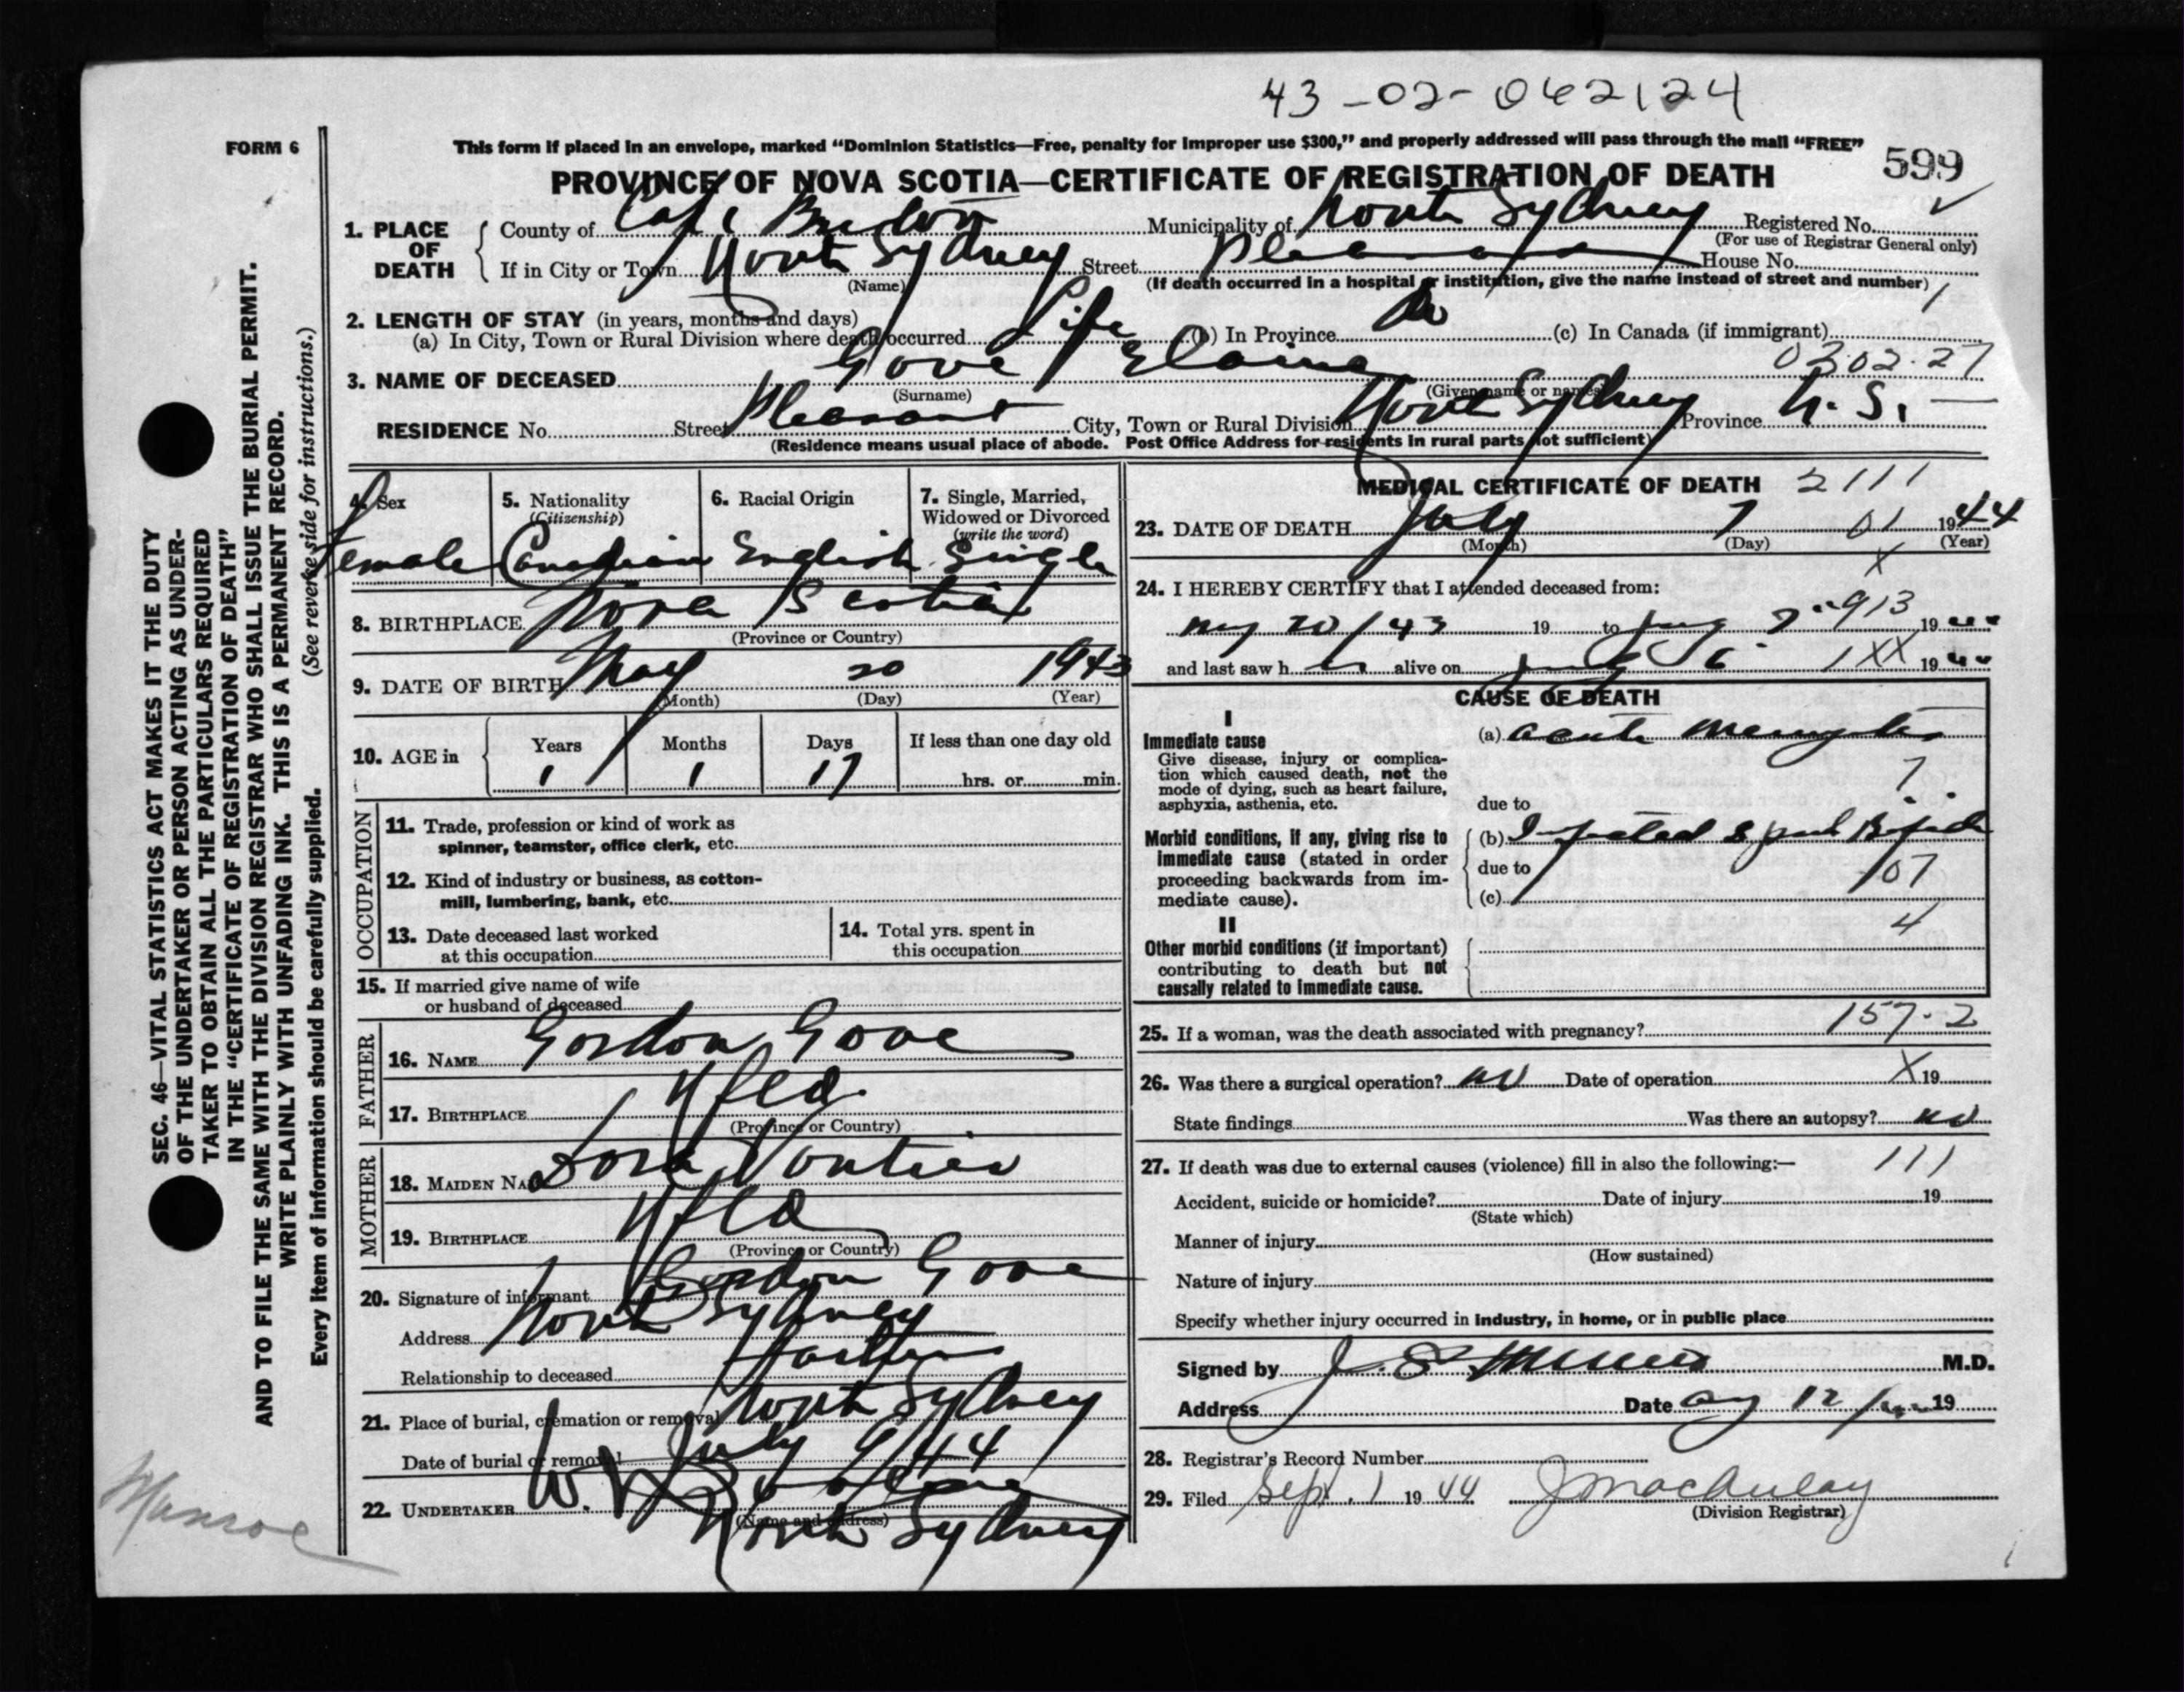 43-02-062124
FORM 6
This form if placed in an envelope, marked "Dominion Statistics—Free, penalty for improper use $300," and properly addressed will pass through the mail "FREE"
599
PROVINCE OF NOVA SCOTIA—CERTIFICATE OF REGISTRATION OF DEATH
1. PLACE OF DEATH County of Cape Breton Municipality of North Sydney Registered No.
(For use of Registrar General only)
If in City or Town North Sydney Street Pleasant House No.
(Name) (If death occurred in a hospital or institution, give the name instead of street and number) 1
2. LENGTH OF STAY (in years, months and days)
(a) In City, Town or Rural Division where death occurred Life (b) In Province (c) In Canada (if immigrant)
0302-27
3. NAME OF DECEASED Gove Elaine
(Surname) (Given name or names)
RESIDENCE No. Street Pleasant City, Town or Rural Division North Sydney Province N.S.
(Residence means usual place of abode. Post Office Address for residents in rural parts not sufficient)
4. Sex 5. Nationality (Citizenship) 6. Racial Origin 7. Single, Married, Widowed or Divorced (write the word)
Female Canadian English Single
8. BIRTHPLACE Nova Scotia
(Province or Country)
9. DATE OF BIRTH May 20 1943
(Month) (Day) (Year)
10. AGE in Years Months Days If less than one day old
1 1 17 hrs. or min.
OCCUPATION
11. Trade, profession or kind of work as
spinner, teamster, office clerk, etc.
12. Kind of industry or business, as cotton-
mill, lumbering, bank, etc.
13. Date deceased last worked
at this occupation
14. Total yrs. spent in
this occupation
15. If married give name of wife
or husband of deceased
FATHER
16. NAME Gordon Gove
17. BIRTHPLACE Nfld.
(Province or Country)
MOTHER
18. MAIDEN NAME
19. BIRTHPLACE Nfld
(Province or Country)
20. Signature of informant Gordon Gove
Address North Sydney
Relationship to deceased Father
21. Place of burial, cremation or removal North Sydney
Date of burial or removal July 9/44
22. UNDERTAKER W.
(Name and address)
North Sydney
MEDICAL CERTIFICATE OF DEATH 2111
23. DATE OF DEATH July 7 01 1944
(Month) (Day) (Year)
X
24. I HEREBY CERTIFY that I attended deceased from:
May 20/43 19 to 7 913 1944
and last saw h er alive on 6 1XX 1944
CAUSE OF DEATH
I
Immediate cause
Give disease, injury or complica-
tion which caused death, not the
mode of dying, such as heart failure,
asphyxia, asthenia, etc.
(a) acute meningitis
7
due to
Morbid conditions, if any, giving rise to
immediate cause (stated in order
proceeding backwards from im-
mediate cause).
(b) Infected Spina Bifida
due to
107
(c)
4
II
Other morbid conditions (if important)
contributing to death but not
causally related to immediate cause.
25. If a woman, was the death associated with pregnancy? 157-2
26. Was there a surgical operation? no Date of operation X 19
State findings Was there an autopsy? no
27. If death was due to external causes (violence) fill in also the following:— 111
Accident, suicide or homicide? Date of injury 19
(State which)
Manner of injury
(How sustained)
Nature of injury
Specify whether injury occurred in industry, in home, or in public place
Signed by J. S. Munro M.D.
Address Date 12 19
28. Registrar's Record Number
29. Filed Sept. 1 19 44 J Macaulay
(Division Registrar)
SEC. 46—VITAL STATISTICS ACT MAKES IT THE DUTY
OF THE UNDERTAKER OR PERSON ACTING AS UNDER-
TAKER TO OBTAIN ALL THE PARTICULARS REQUIRED
IN THE "CERTIFICATE OF REGISTRATION OF DEATH"
AND TO FILE THE SAME WITH THE DIVISION REGISTRAR WHO SHALL ISSUE THE BURIAL PERMIT.
WRITE PLAINLY WITH UNFADING INK. THIS IS A PERMANENT RECORD.
Every item of information should be carefully supplied. (See reverse side for instructions.)
Munroe